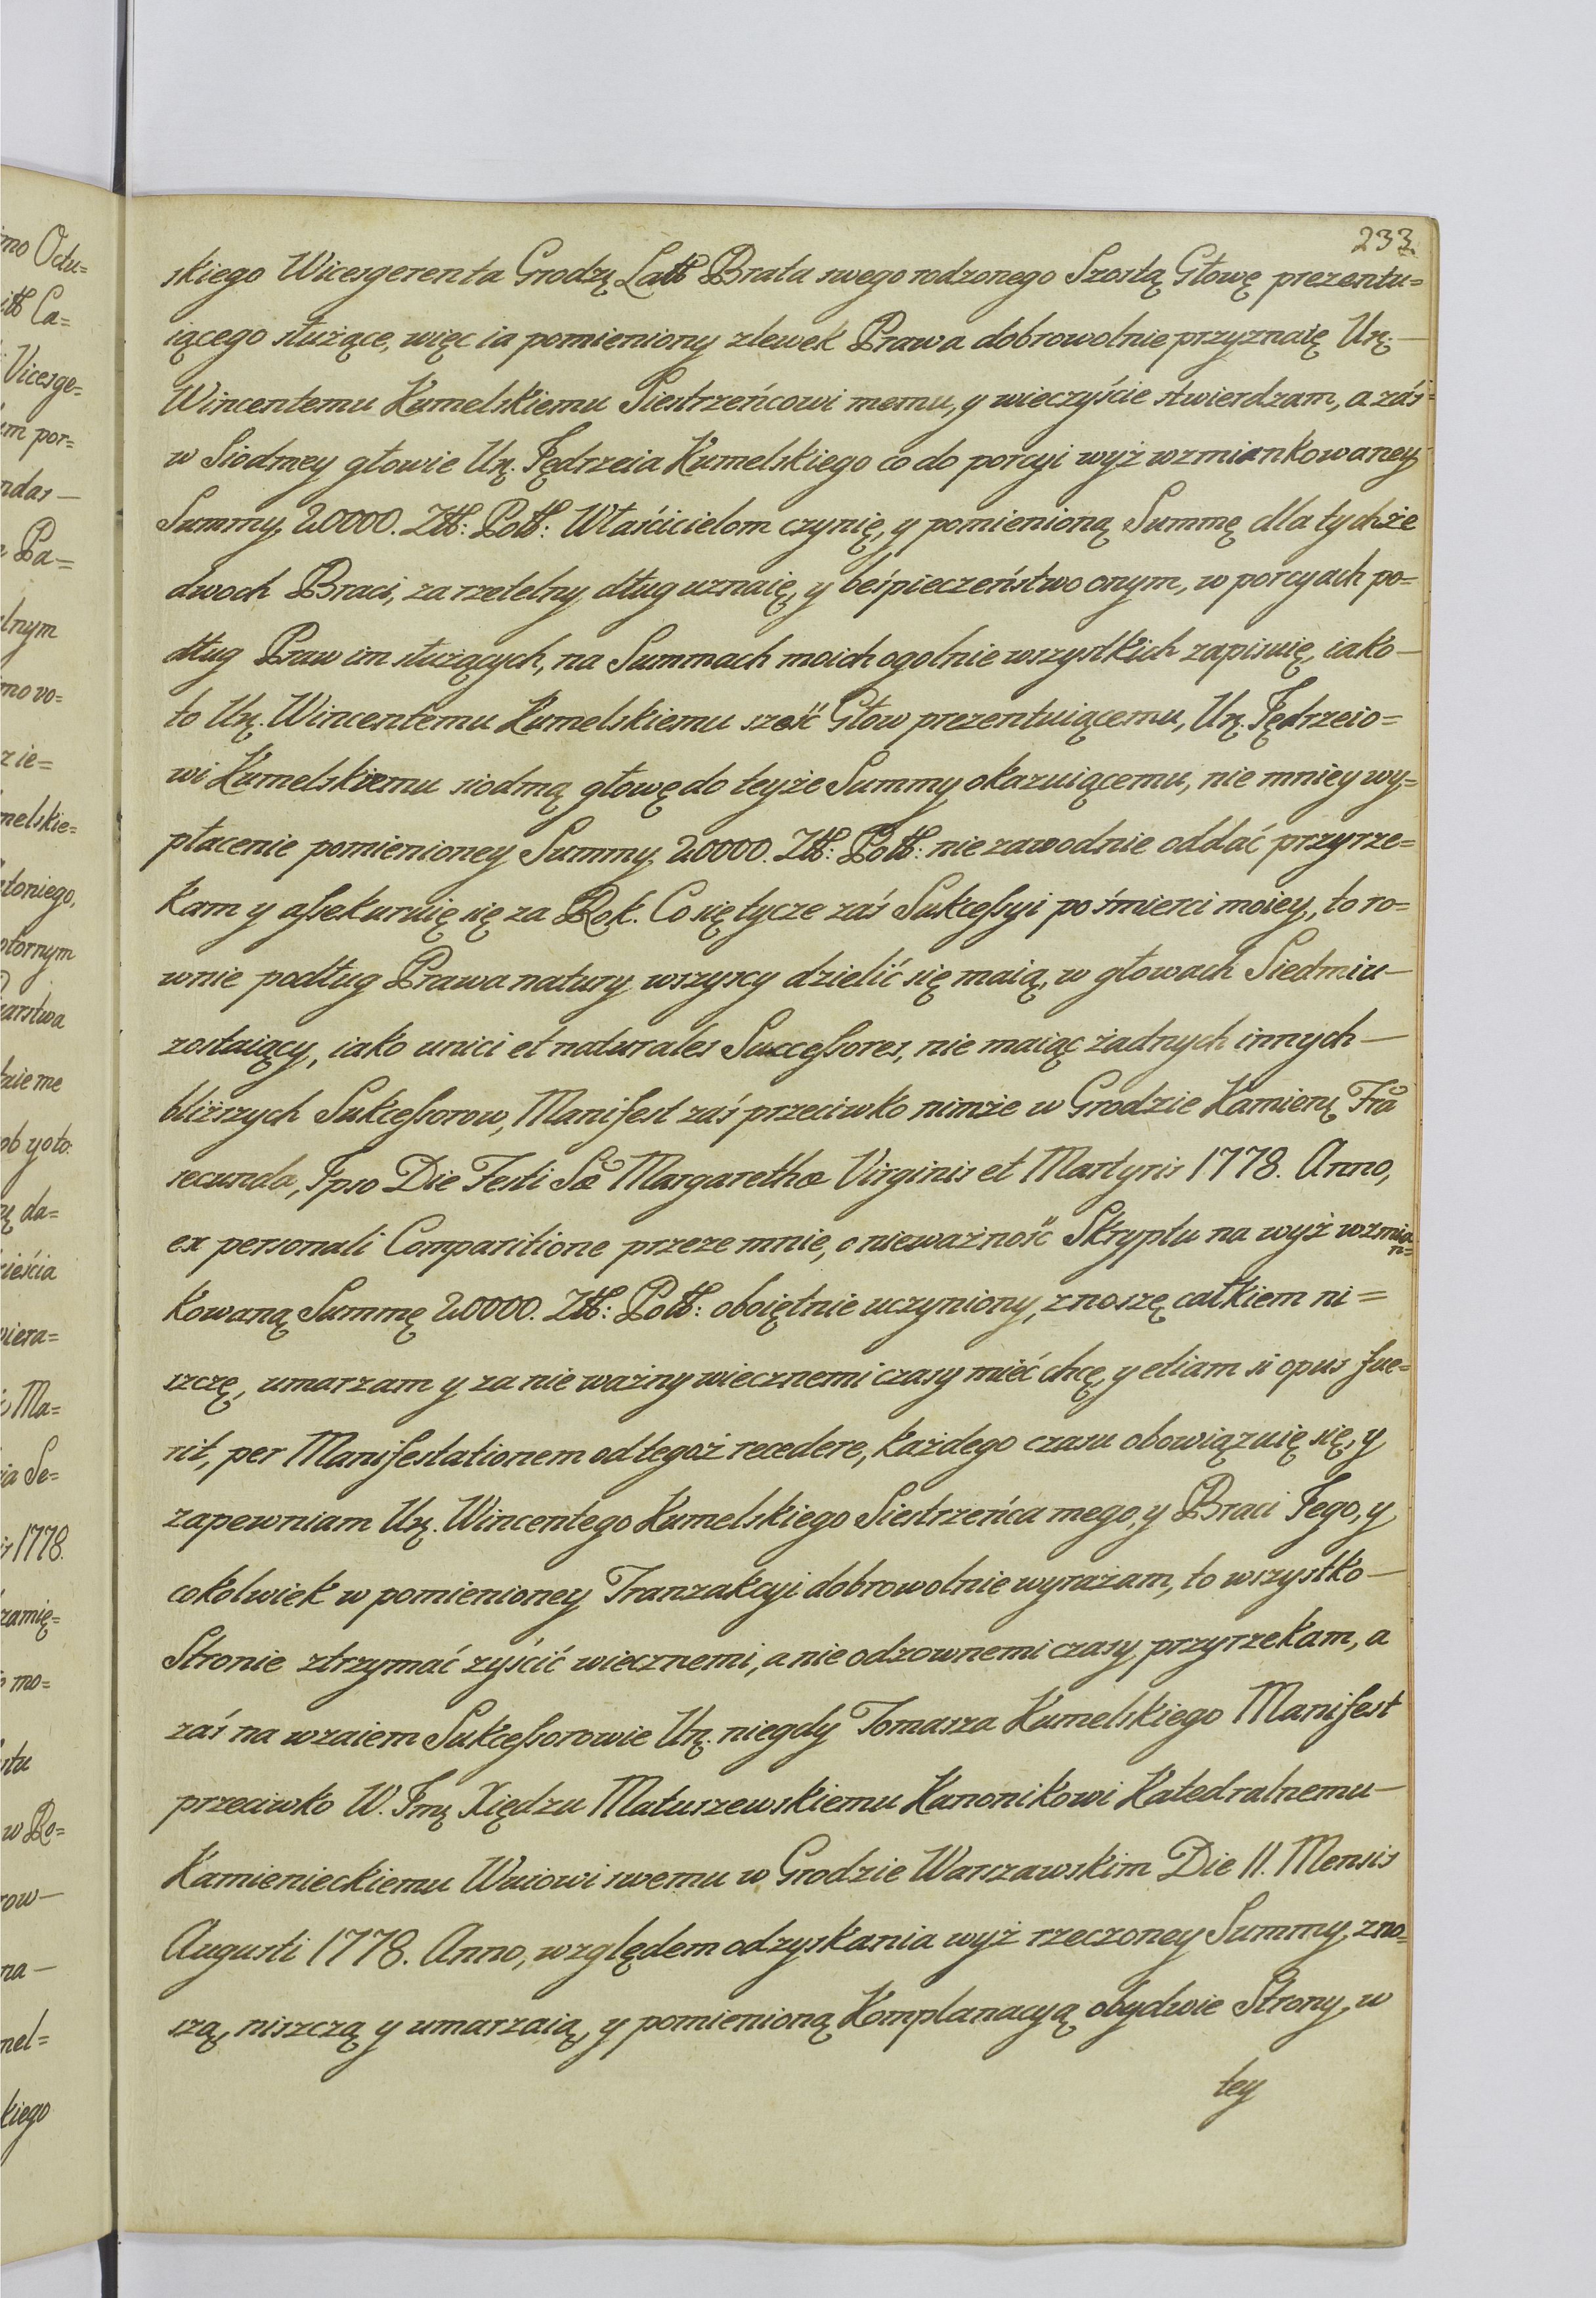 233.
skiego Wicesgerenta Grodzꝫ Latt Brata swego rodzonego Szostą Głowę prezentu=
iącego służące, więc ia pomieniony zlewek Prawa dobrowolnie przyznaię Urꝫ.—
Wincentemu Kumelskiemu Siestrzeńcowi memu, y wieczyście stwierdzam, a zaś=
w Siodmey głowie Urꝫ. Jędrzeia Kumelskiego co do porcyi wyż wzmiankowaney
Summy 20000. Ztt: Pott: Właścicielom czynię, y pomienioną Summę dla tychże
dwoch Braci, za rzetelny dług uznaię, y beśpieczeństwo onym, w porcyach po=
dług Praw im służących, na Summach moich ogolnie wszystkich zapisuię, iako—
to Urꝫ. Wincentemu Kumelskiemu sześć Głow prezentuiącemu, Urꝫ. Jędrzeio=
wi Kumelskiemu siodmą głowę do teyże Summy okazuiącemu, nie mniey wy=
płacenie pomienioney Summy 20000. Ztt: Pott: nie zawodnie oddać przyrze=
kam y assekuruię się za Rok. Co się tycze zaś Sukcessyi po śmierci moiey, to ro=
wnie podług Prawa natury wszyscy dzielić się maią, w głowach Siedmiu—
zostaiący, iako unici et naturales Successores, nie maiąc żadnych innych—
bliższych Sukcessorow, Manifest zaś przeciwko nimże w Grodzie Kamienꝫ Fra
secunda, Ipso Die Festi Sæ Margarethæ Virginis et Martyris 1778. Anno,
ex personali Comparitione przeze mnie, o nieważność Skryptu na wyż wzmian=
kowaną Summę 20000. Ztt: Pott: oboiętnie uczyniony, znoszę całkiem ni=
szczę, umarzam y za nie ważny wiecznemi czasy mieć chcę, y etiam si opus fue=
rit, per Manifestationem od tegoż recedere, każdego czasu obowiązuię się, y
zapewniam Urꝫ. Wincentego Kumelskiego Siestrzeńca mego, y Braci Jego, y
cokolwiek w pomienioney Tranzakcyi dobrowolnie wyrażam, to wszystko—
Stronie ztrzymać zyścić wiecznemi, a nie odzownemi czasy przyrzekam, a
zaś na wzaiem Sukcessorowie Urꝫ. niegdy Tomasza Kumelskiego Manifest
przeciwko W. Jmꝫ Xiędzu Matuszewskiemu Kanonikowi Katedralnemu—
Kamienieckiemu Wuiowi swemu w Grodzie Warszawskim Die 11. Mensis
Augusti 1778. Anno, względem odzyskania wyż rzeczoney Summy, zno=
szą, niszczą y umarzaią, y pomienioną Komplanacyą obydwie Strony, w
tey